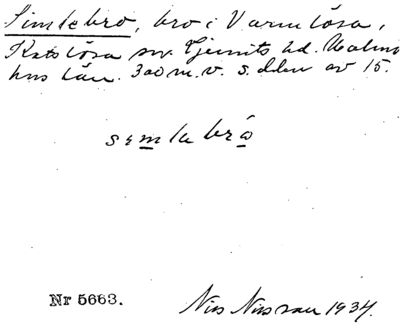 Simlebro, bro i Varmlösa,
Katslösa sn. Ljunits hd. Malmö
hus län. 300 m. v. s. delen av 15.
semlabrö
Nr 5663.
Nils Nilsson 1934.